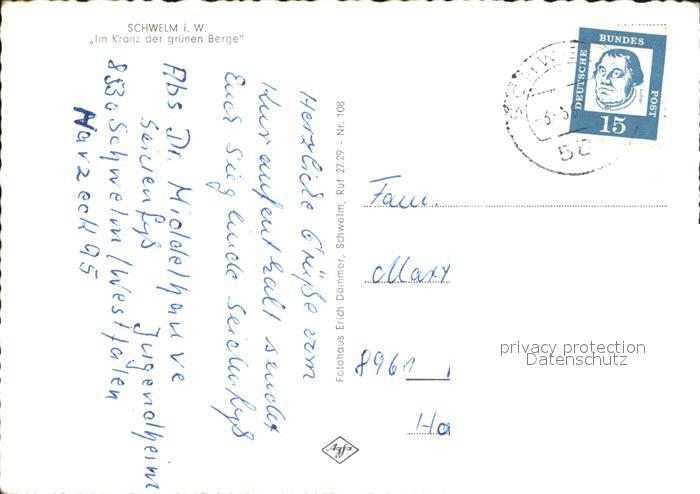 SCHWELM i. W.
„Im Kranz der grünen Berge"
Herzliche Grüße vom
Kuraufenthalt sendet
Euch Sieglinde Seidenfuß
Abs Dr. Middelhauve
Seidenfuß Jugendheim
8530 Schwelm/Westfalen
95
Fotohaus Erich Dämmer, Schwelm, Ruf 2729 - Nr. 108
DEUTSCHE BUNDES POST
15
58
Fam.
8961
Ha
privacy protection
Datenschutz